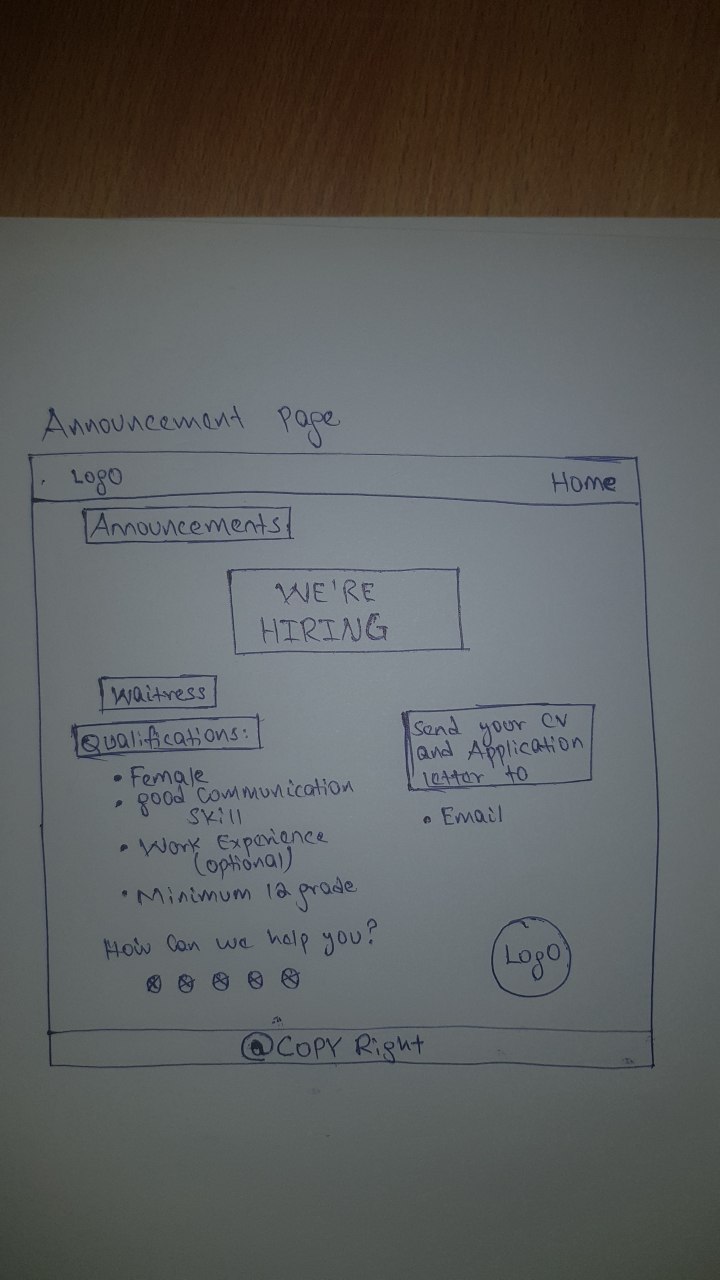 Announcement Page
Logo
Home
Announcements
WE'RE
HIRING
Waitress
Qualifications:
• Female
• good Communication
Skill
• Work Experience
(optional)
• Minimum 12 grade
Send your CV
and Application
letter to
• Email
How Can we help you?
Logo
@COPY Right